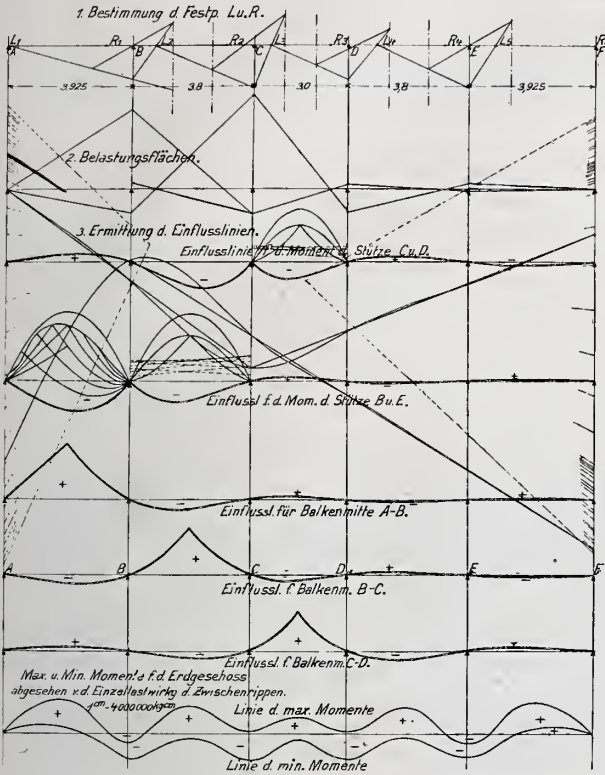 1. Bestimmung d. Festp. L u. R.
L1 R1 L2 R2 L3 R3 L4 R4 L5 R
A B C D E F
3,925 3.8 3.0 3,8 3,925
2. Belastungsflächen.
3. Ermittlung d. Einflusslinien.
Einflusslinie f. d. Moment d. Stütze C u. D.
+ − − + −
Einflussl. f. d. Mom. d. Stütze B u. E.
− − + − +
Einflussl. für Balkenmitte A-B.
+ − + − +
A B C D E
Einflussl. f. Balkenm. B-C.
− + − + −
Einflussl. f. Balkenm. C-D.
+ − + − +
Max. u. Min. Momente f. d. Erdgeschoss
abgesehen v. d. Einzellastwirkg d. Zwischenrippen.
1cm = 4000000kgcm
Linie d. max. Momente
+ + + + + +
− − − −
Linie d. min. Momente